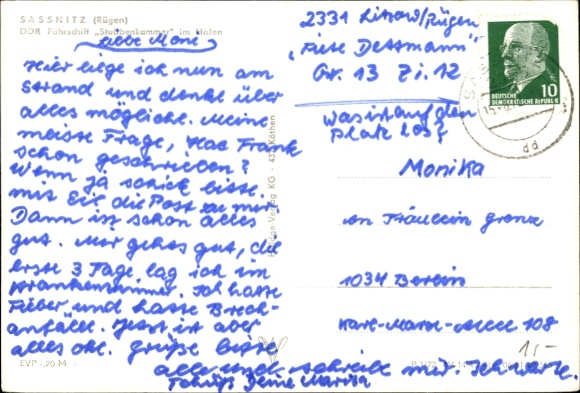 SASSNITZ (Rügen)
DDR Fährschiff „Stubbenkammer" im Hafen
Liebe Moni
Hier liege ich nun am
Strand und denke über
alles mögliche. Meine
meiste Frage, Hat Frank
schon geschrieben?
Wenn ja schick bitte
mit Eil die Post zu mir.
Dann ist schon alles
gut. Mir gehts gut, die
erste 3 Tage lag ich im
Krankenzimmer. Ich hatte
Fieber und hatte Brech-
anfälle. Jetzt ist aber
alles ok. Grüße bitte
alle und schreibe mir. Ich warte.
Tschüß Deine Marita
EVP -.20 M
Verlag KG · 437 Köthen
2331 Lietzow/Rügen
„Fritz Dettmann"
Gr. 13 Zi. 12
Was ist auf den
Platz los?
Monika
an Fräulein
1034 Berlin
Karl-Marx-Allee 108
DEUTSCHE
DEMOKRATISCHE REPUBLIK
10
1,-